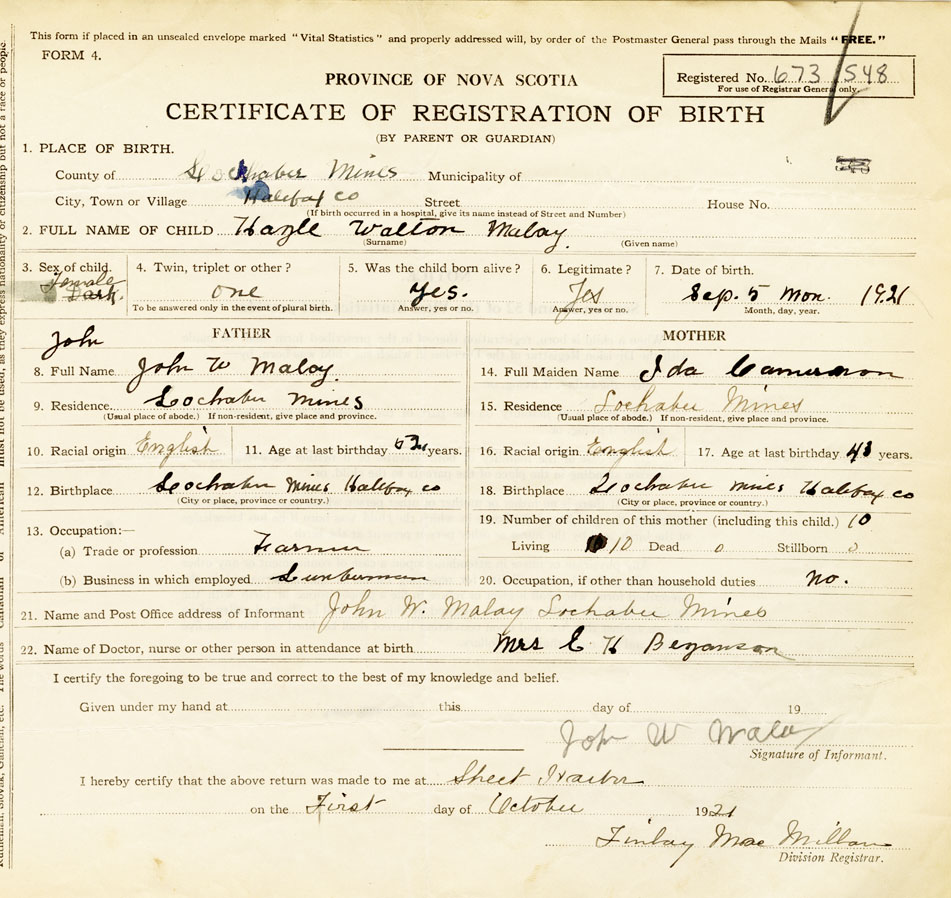 This form if placed in an unsealed envelope marked "Vital Statistics" and properly addressed will, by order of the Postmaster General pass through the Mails "FREE."
FORM 4.
PROVINCE OF NOVA SCOTIA
Registered No. 673 / 548
For use of Registrar General only.
CERTIFICATE OF REGISTRATION OF BIRTH
(BY PARENT OR GUARDIAN)
1. PLACE OF BIRTH.
County of Lochaber Mines Municipality of
City, Town or Village Halifax co Street House No.
(If birth occurred in a hospital, give its name instead of Street and Number)
2. FULL NAME OF CHILD Hazle Walton Malay
(Surname) (Given name)
3. Sex of child. 4. Twin, triplet or other? 5. Was the child born alive? 6. Legitimate? 7. Date of birth.
Female Dark. one Yes. Yes Sep. 5 Mon. 1921
To be answered only in the event of plural birth. Answer, yes or no. Answer, yes or no. Month, day, year.
John FATHER MOTHER
8. Full Name John W Malay 14. Full Maiden Name Ida Cameron
9. Residence. Lochaber Mines 15. Residence Lochaber Mines
(Usual place of abode.) If non-resident, give place and province. (Usual place of abode.) If non-resident, give place and province.
10. Racial origin English 11. Age at last birthday years. 16. Racial origin English 17. Age at last birthday 43 years.
12. Birthplace Lochaber Mines Halifax co 18. Birthplace Lochaber mines Halifax co
(City or place, province or country.) (City or place, province or country.)
13. Occupation:— 19. Number of children of this mother (including this child.) 10
(a) Trade or profession Farmer Living 10 Dead 0 Stillborn 0
(b) Business in which employed Lumberman 20. Occupation, if other than household duties no.
21. Name and Post Office address of Informant John W. Malay Lochaber Mines
22. Name of Doctor, nurse or other person in attendance at birth. Mrs E H Bezanson
I certify the foregoing to be true and correct to the best of my knowledge and belief.
Given under my hand at this day of 19
John W Malay
Signature of Informant.
I hereby certify that the above return was made to me at Sheet Harbor
on the First day of October 1921
Finlay MacMillan
Division Registrar.